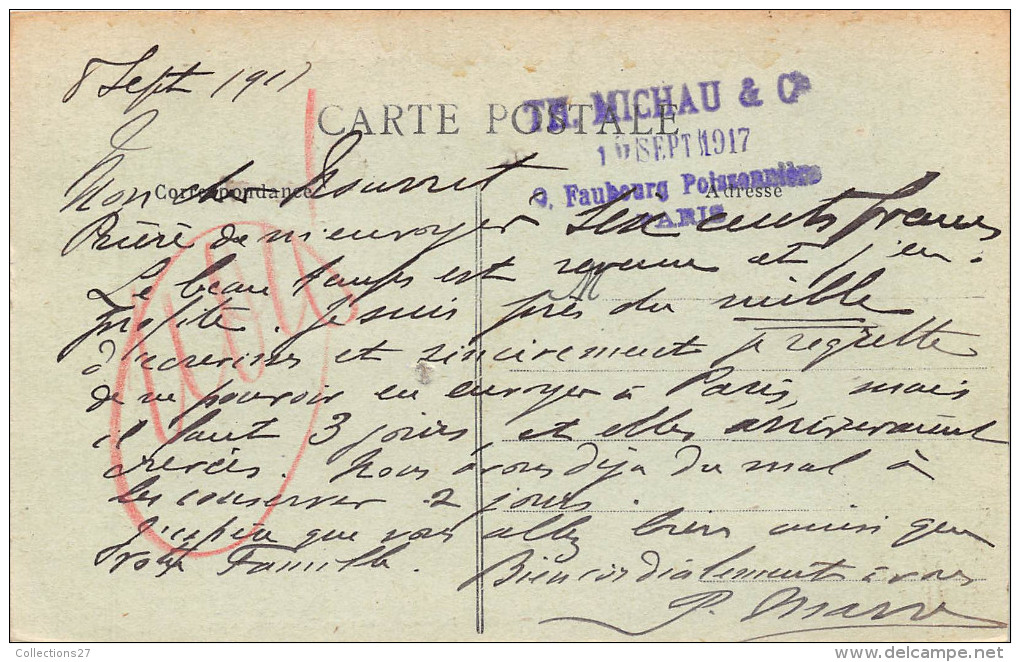 8 Sept 1917
CARTE POSTALE
TH. MICHAU & Cie
10 SEPT 1917
Faubourg Poissonnière
PARIS
Correspondance
Adresse
Mon cher Mourret
Prière de m'envoyer six cents francs
Le beau temps est revenu et j'en
profite. Je suis près du mille
d'écrevisses et sincèrement je regrette
de ne pouvoir en envoyer à Paris, mais
il faut 3 jours et elles arriveraient
crevées. Nous avons déjà du mal à
les conserver 2 jours.
J'espère que vous allez bien ainsi que
votre Famille.
Bien cordialement à vous
M
Collections27
www.delcampe.net